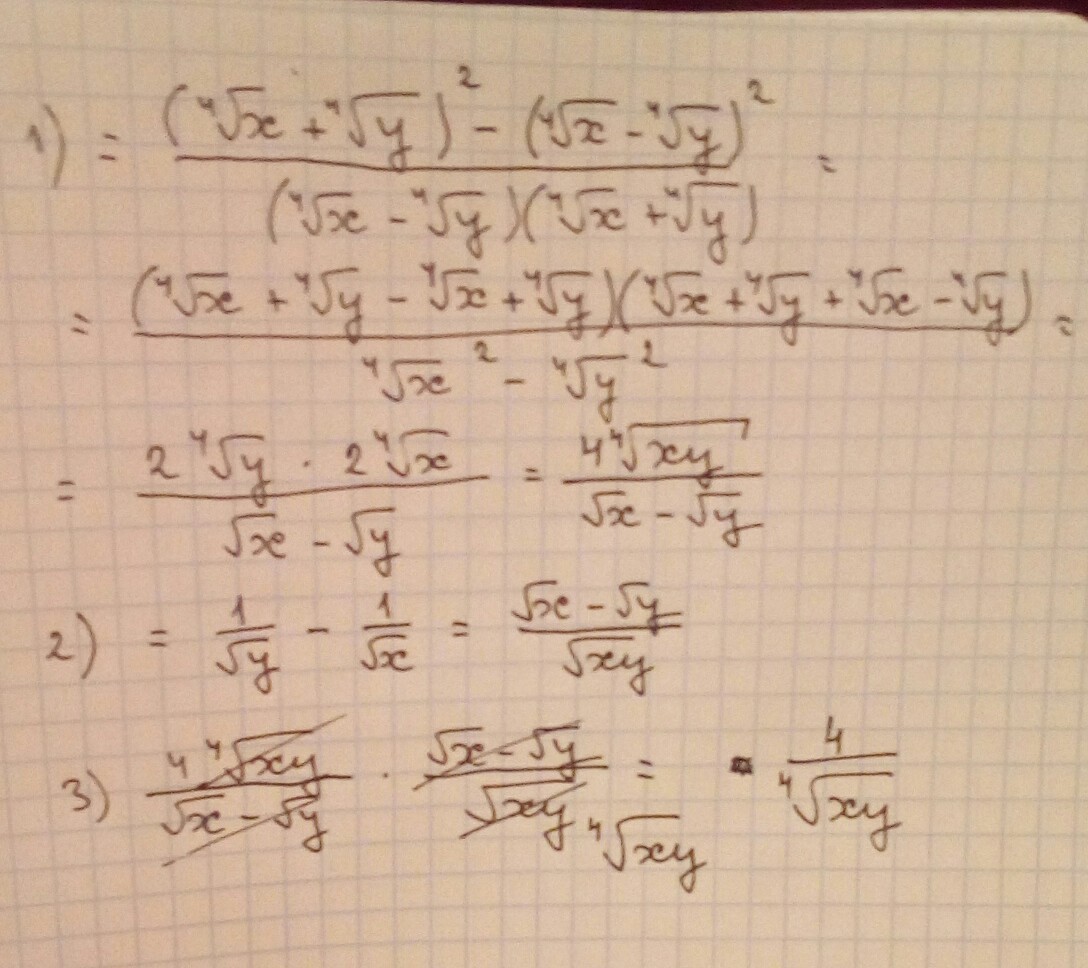 1) = ((⁴√x + ⁴√y)² - (⁴√x - ⁴√y)²) / ((⁴√x - ⁴√y)(⁴√x + ⁴√y)) =
= ((⁴√x + ⁴√y - ⁴√x + ⁴√y)(⁴√x + ⁴√y + ⁴√x - ⁴√y)) / (⁴√x² - ⁴√y²) =
= (2⁴√y · 2⁴√x) / (√x - √y) = (4⁴√xy) / (√x - √y)
2) = 1/√y - 1/√x = (√x - √y) / √xy
3) (4⁴√xy) / (√x - √y) · (√x - √y) / √xy ⁴√xy = 4 / ⁴√xy